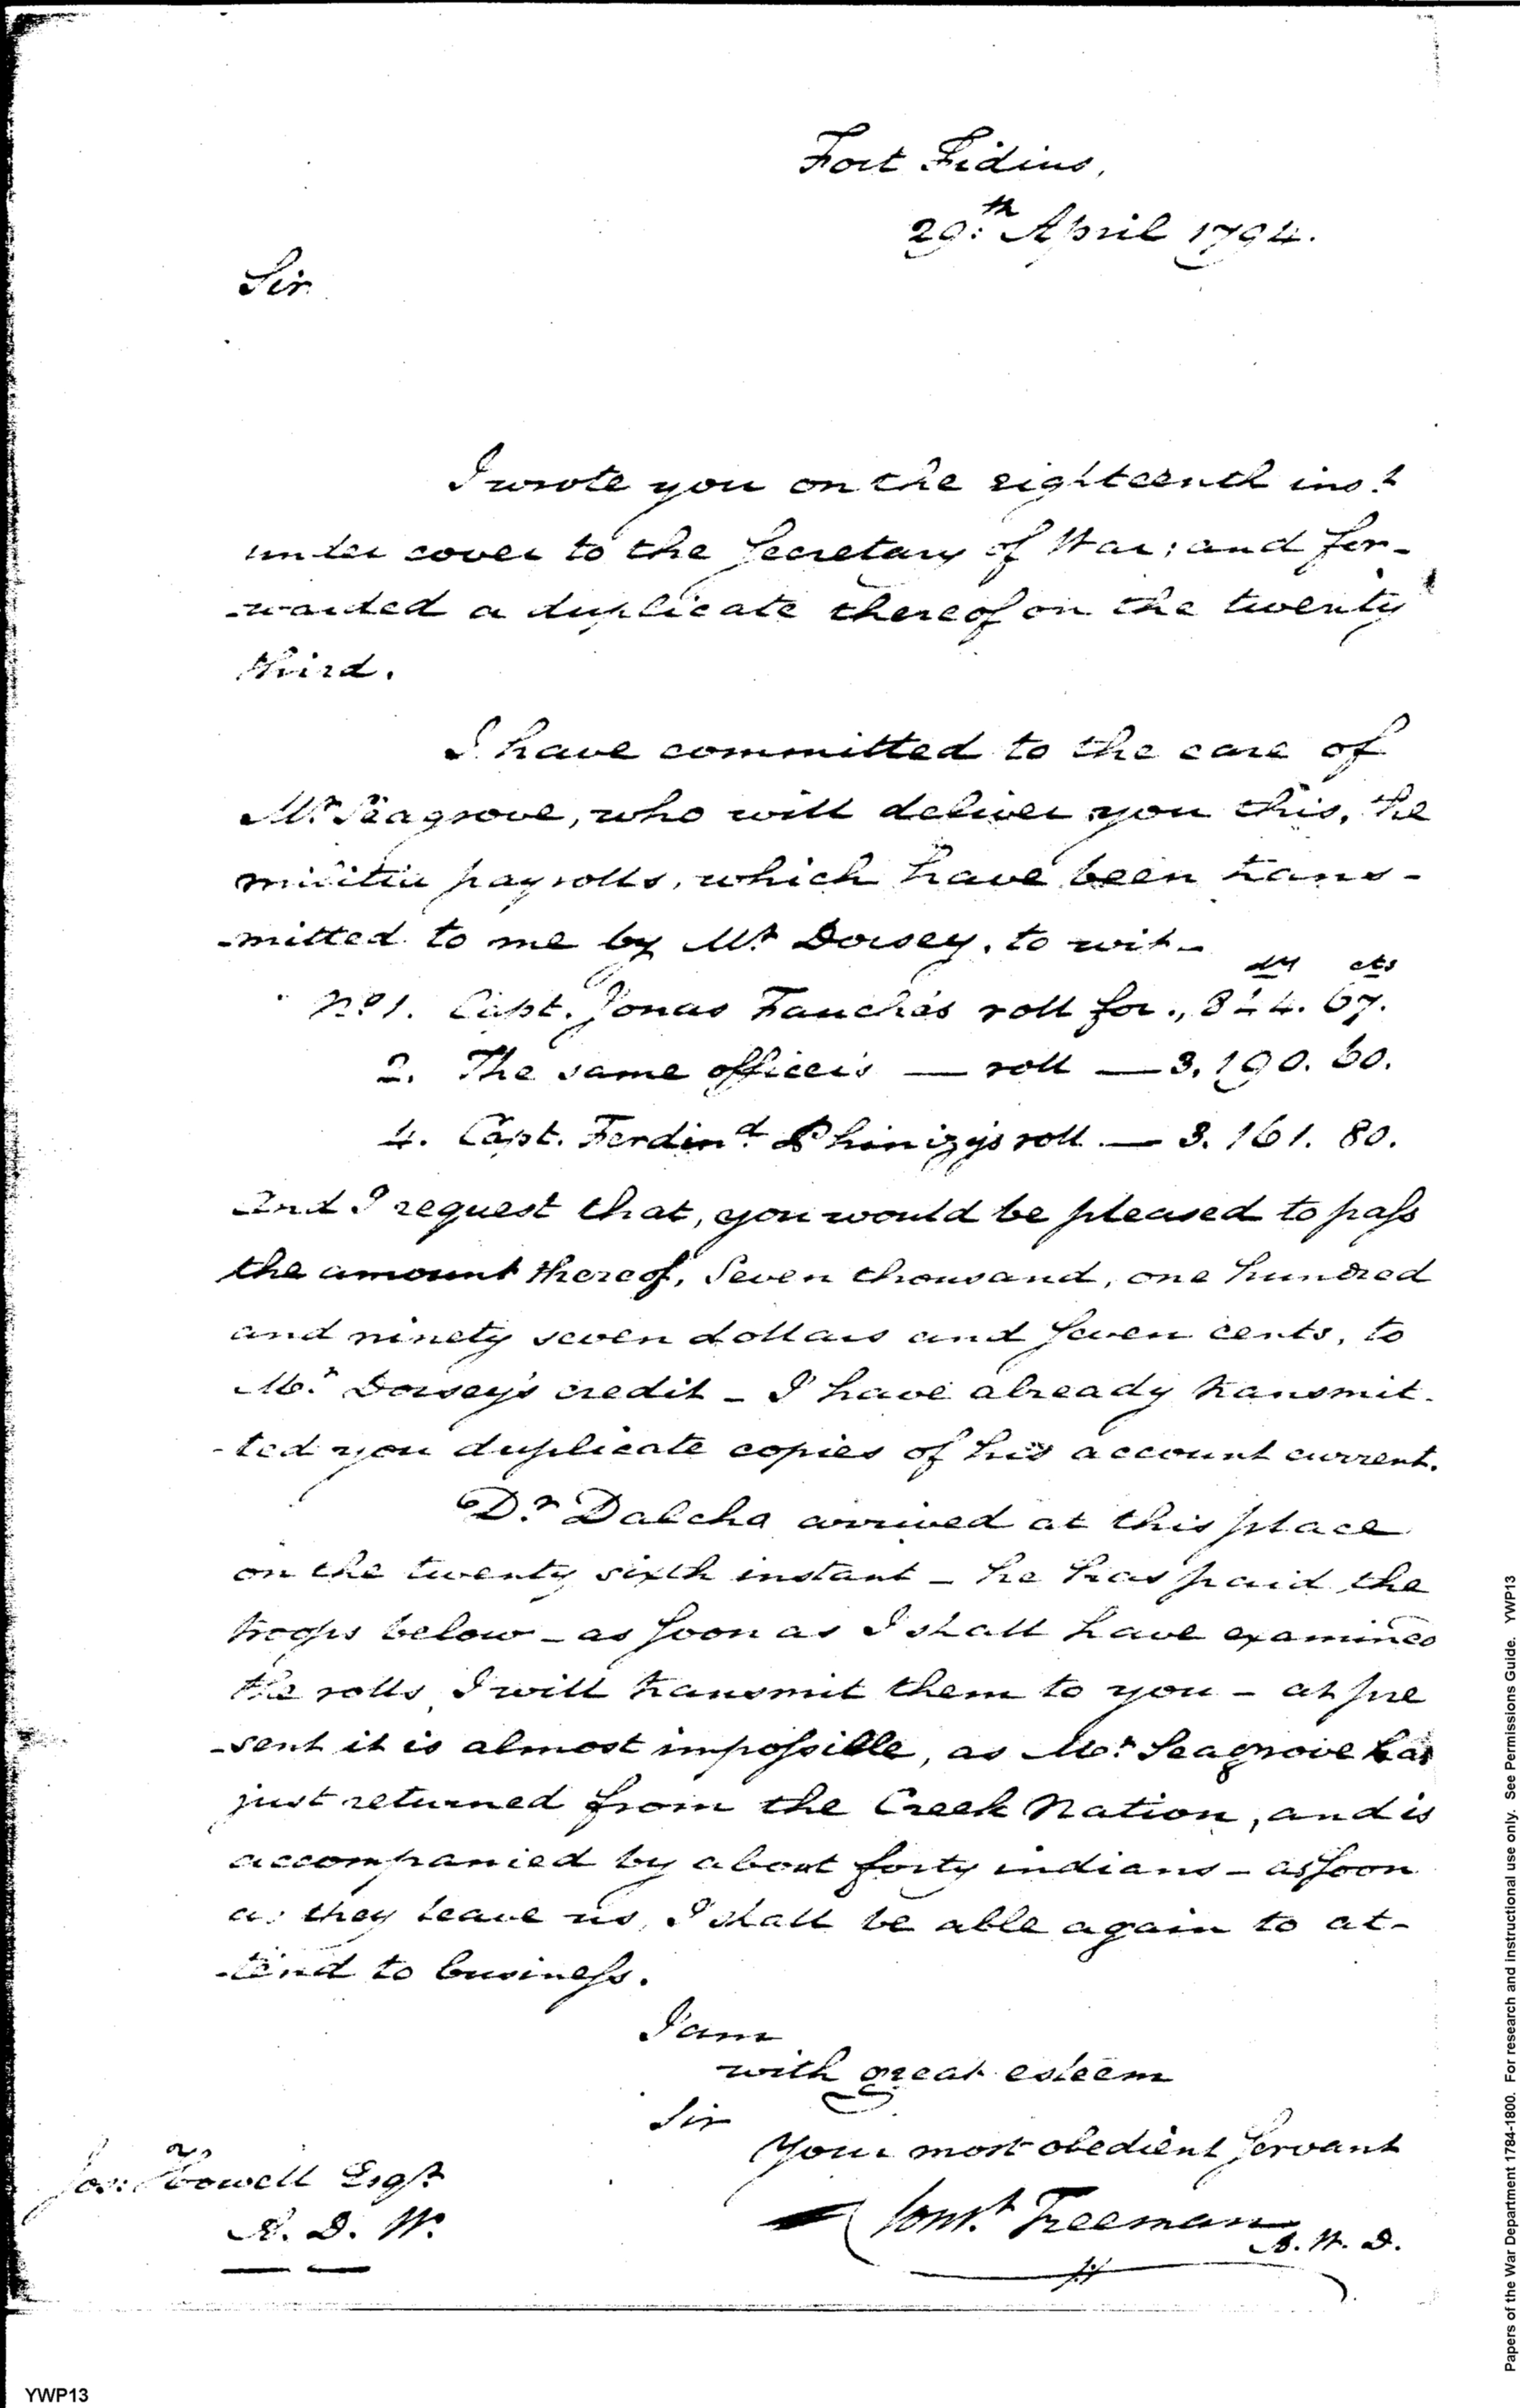 Fort Fidius,
29:th April 1794.
Sir
I wrote you on the eighteenth inst
under cover to the Secretary of War; and for-
-warded a duplicate thereof on the twenty
third.
I have committed to the care of
Mr Seagrove, who will deliver you this, the
militia pay rolls, which have been trans-
-mitted to me by Mr Dorsey, to wit-
drs cts
No 1. Capt. Jonas Fauche's roll for., 844. 67.
2. The same officer's — roll — 3. 190. 60.
4. Capt. Ferdind Phinizy's roll — 3. 161. 80.
and I request that, you would be pleased to pass
the amount thereof, Seven thousand, one hundred
and ninety seven dollars and seven cents, to
Mr. Dorsey's credit - I have already transmit-
-ted you duplicate copies of his account current.
Dr. Dalcho arrived at this place
on the twenty sixth instant - he has paid the
troops below - as soon as I shall have examined
the rolls, I will transmit them to you - at pre
-sent it is almost impossible, as Mr. Seagrove has
just returned from the Creek Nation, and is
accompanied by about forty indians - as soon
as they leave us, I shall be able again to at-
-tend to business.
I am
with great esteem
Sir
Your most obedient servant
Jos: Howell Esqr
A. D. W.
Const. Freeman
A. W. D.
Papers of the War Department 1784-1800. For research and instructional use only. See Permissions Guide. YWP13
YWP13